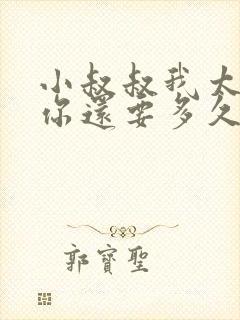 小叔叔我太
你還要多久
郭寶聖